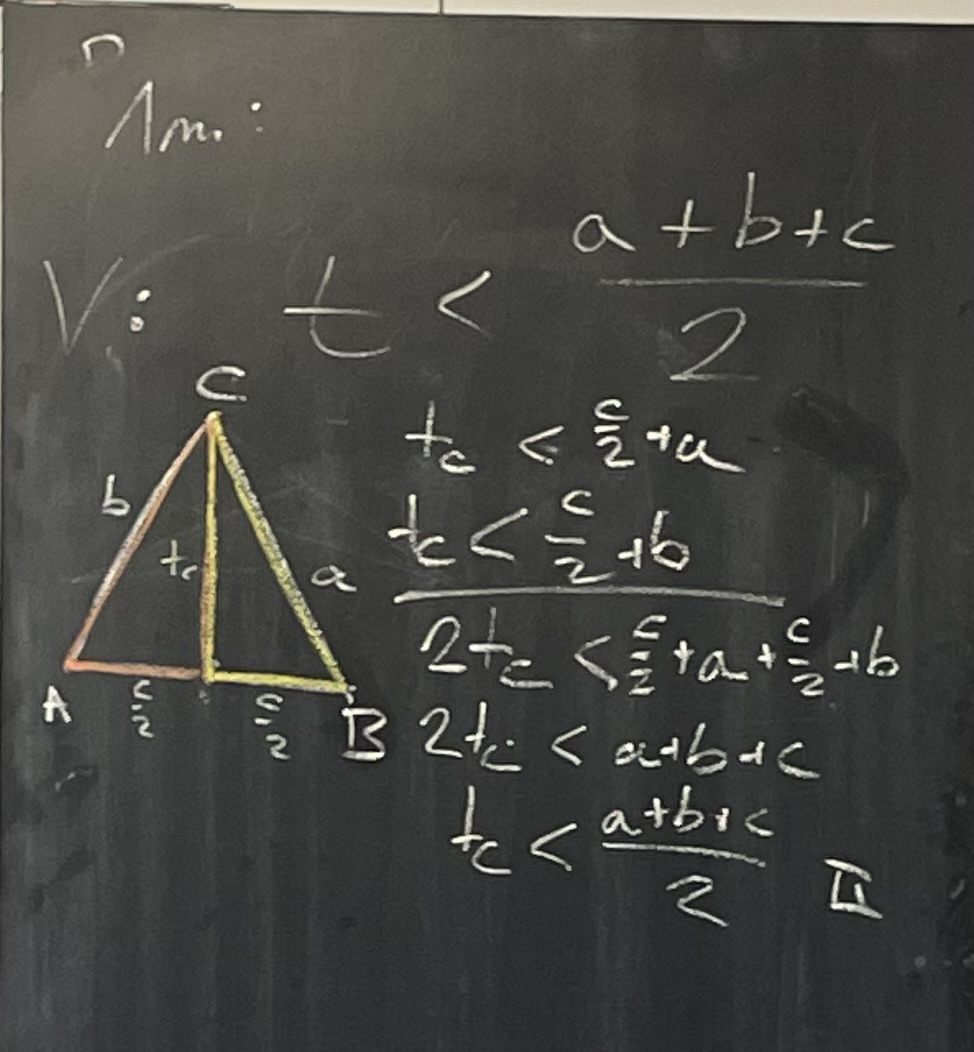 V: t < \frac{a+b+c}{2}
C
b
t_c
a
A
\frac{c}{2}
\frac{c}{2}
B
t_c < \frac{c}{2}+a
t_c < \frac{c}{2}+b
2t_c < \frac{c}{2}+a+\frac{c}{2}+b
2t_c < a+b+c
t_c < \frac{a+b+c}{2}